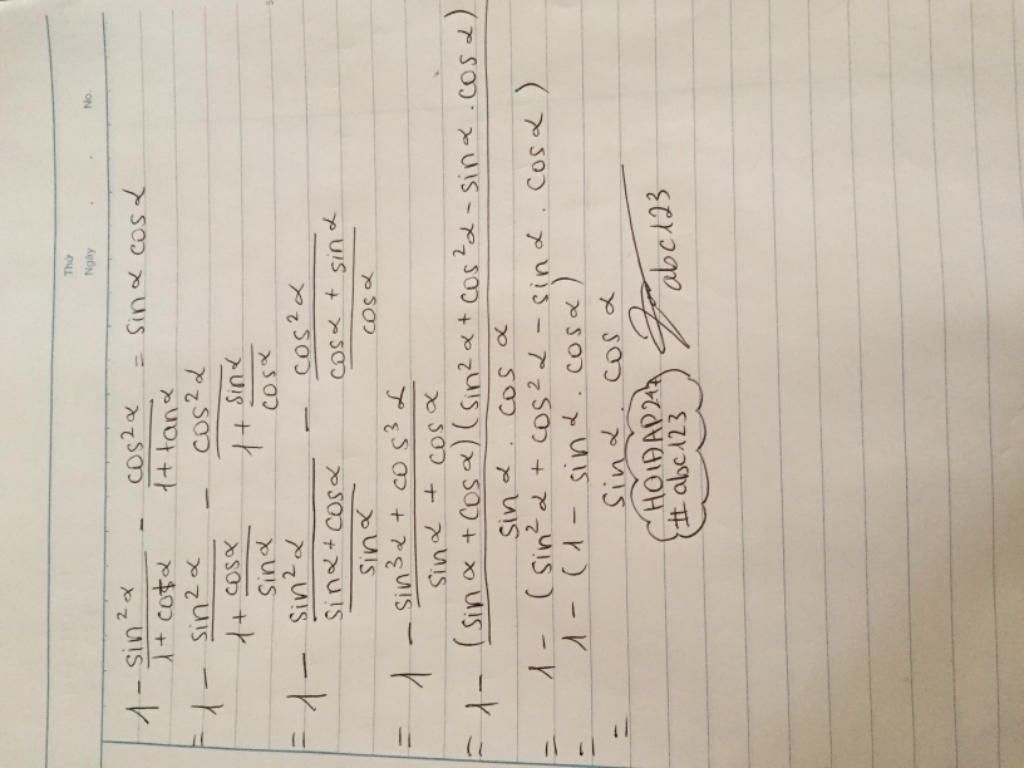 Thứ
Ngày No.
1 - sin²α / (1 + cotα) - cos²α / (1 + tanα) = sinα cosα
= 1 - sin²α / (1 + cosα / sinα) - cos²α / (1 + sinα / cosα)
= 1 - sin²α / ((sinα + cosα) / sinα) - cos²α / ((cosα + sinα) / cosα)
= 1 - (sin³α + cos³α) / (sinα + cosα)
= 1 - (sinα + cosα)(sin²α + cos²α - sinα . cosα) / (sinα . cosα)
= 1 - (sin²α + cos²α - sinα . cosα)
= 1 - (1 - sinα . cosα)
= sinα . cosα
HOIĐAP247
#abc123
abc123